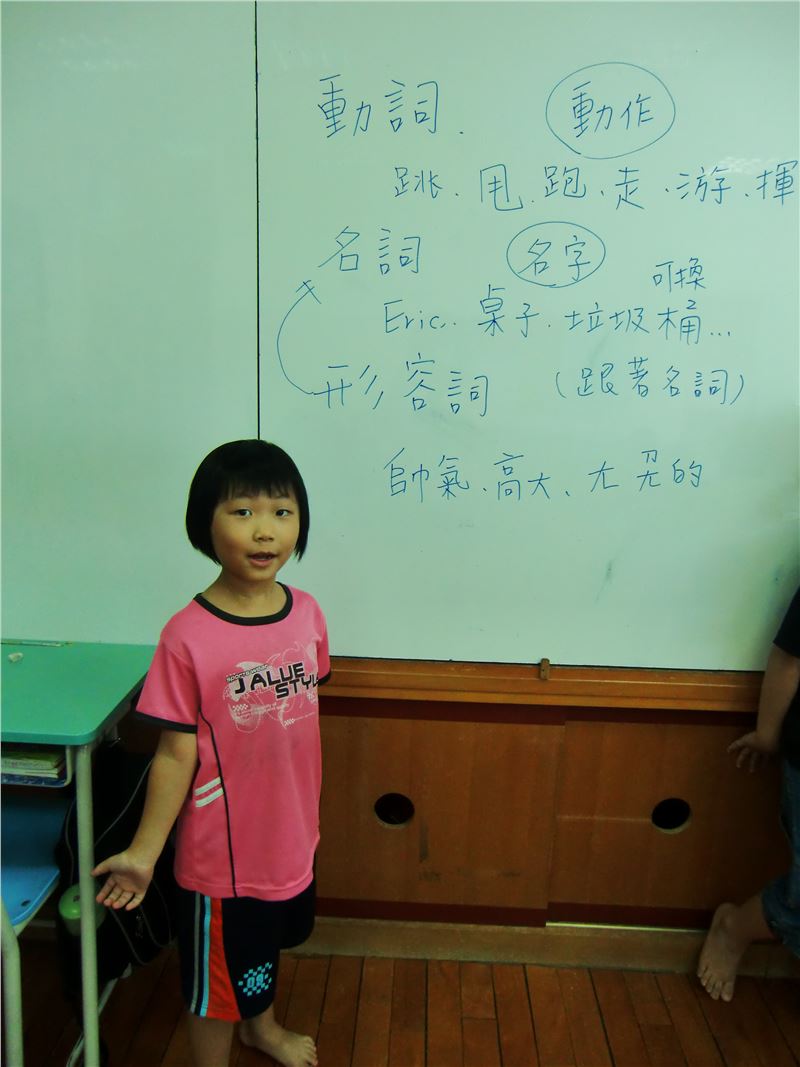 動詞. 動作
跳、甩、跑、走、游、揮
名詞 名字
可換
Eric. 桌子. 垃圾桶...
形容詞 (跟著名詞)
帥氣、高大、ㄤ ㄤ的
JALUE
STYLE